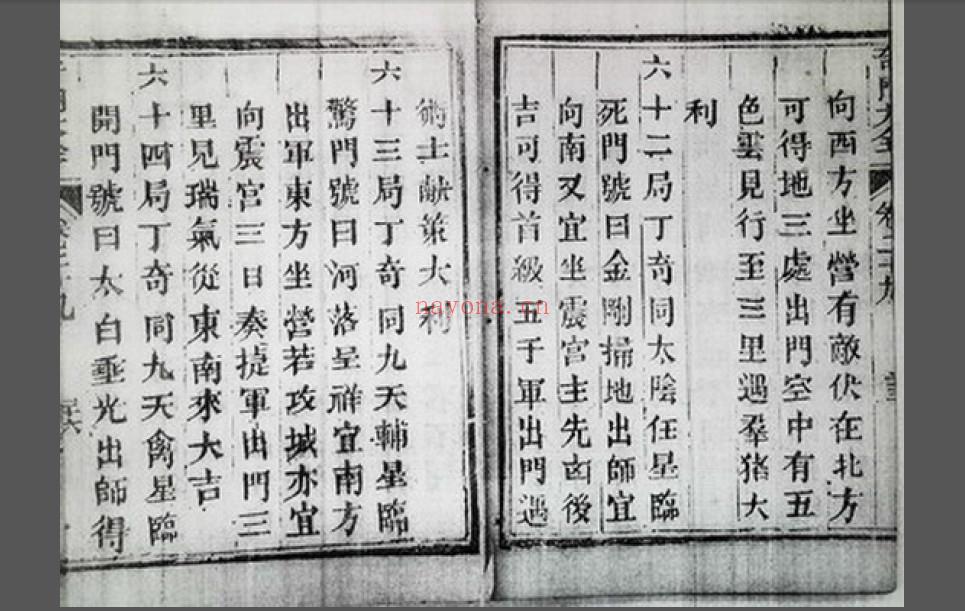 奇門大全
卷二十九
向西方坐營有敵伏在北方
可得地三處出門空中有五
色雲見行至三里遇羣猪大
利
六十二局丁奇同太陰任星臨
死門號曰金剛掃地出師宜
向南又宜坐震宮主先凶後
吉可得首級五千軍出門遇
術士献策大利
六十三局丁奇同九天輔星臨
驚門號曰河落呈祥宜南方
出軍東方坐營若攻城亦宜
向震宮三日奏捷軍出門三
里見瑞氣從東南來大吉
六十四局丁奇同九天禽星臨
開門號曰太白垂光出師得
nayona.cn